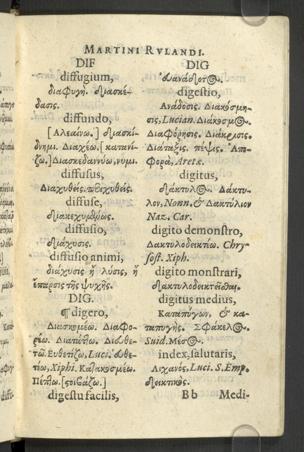 MARTINI RVLANDI.
DIF
diffugium,
διαφυγή. Διασκέ-
δασις.
diffundo,
[Αλεαίνω.] Διασκί-
δνημι. Διαχέω. [κατανί-
ζω.] Διασκεδαννύω, νυμι.
diffusus,
Διαχυθείς.
diffuse,
diffusio,
Διάχυσις.
diffusio animi,
διάχυσις ἢ λύσις, ἢ
ἔπαρσις τῆς ψυχῆς.
DIG.
¶ digero,
Διακοσμέω. Διαφο-
ρέω. Διαπέττω.
Εὐθετίζω, Luci.
Xiphi. Κατακοσμέω.
Πέττω.
digestu facilis,
diff-
DIG
digestio,
Ανάδοσις. Διακόσμη-
σις, Lucian. Διάκοσμος.
Διαφόρησις. Διάκρισις.
Διάταξις. πέψις. Ἀπ-
φορά, Aretæ.
digitus,
Δάκτυλος. Δάκτυ-
λον, Nonn. & Δακτύλιον
Naz. Car.
digito demonstro,
Δακτυλοδεικτέω. Chry-
sost. Xiph.
digito monstrari,
δακτυλοδεικτεῖσθαι.
digitus medius,
Καταπύγων, & κα-
ταπυγής. Σφάκελος.
Suid. Μέσος.
index, salutaris,
Λιχανός, Luci. S. Emp.
δεικτικός.
Bb Medi-